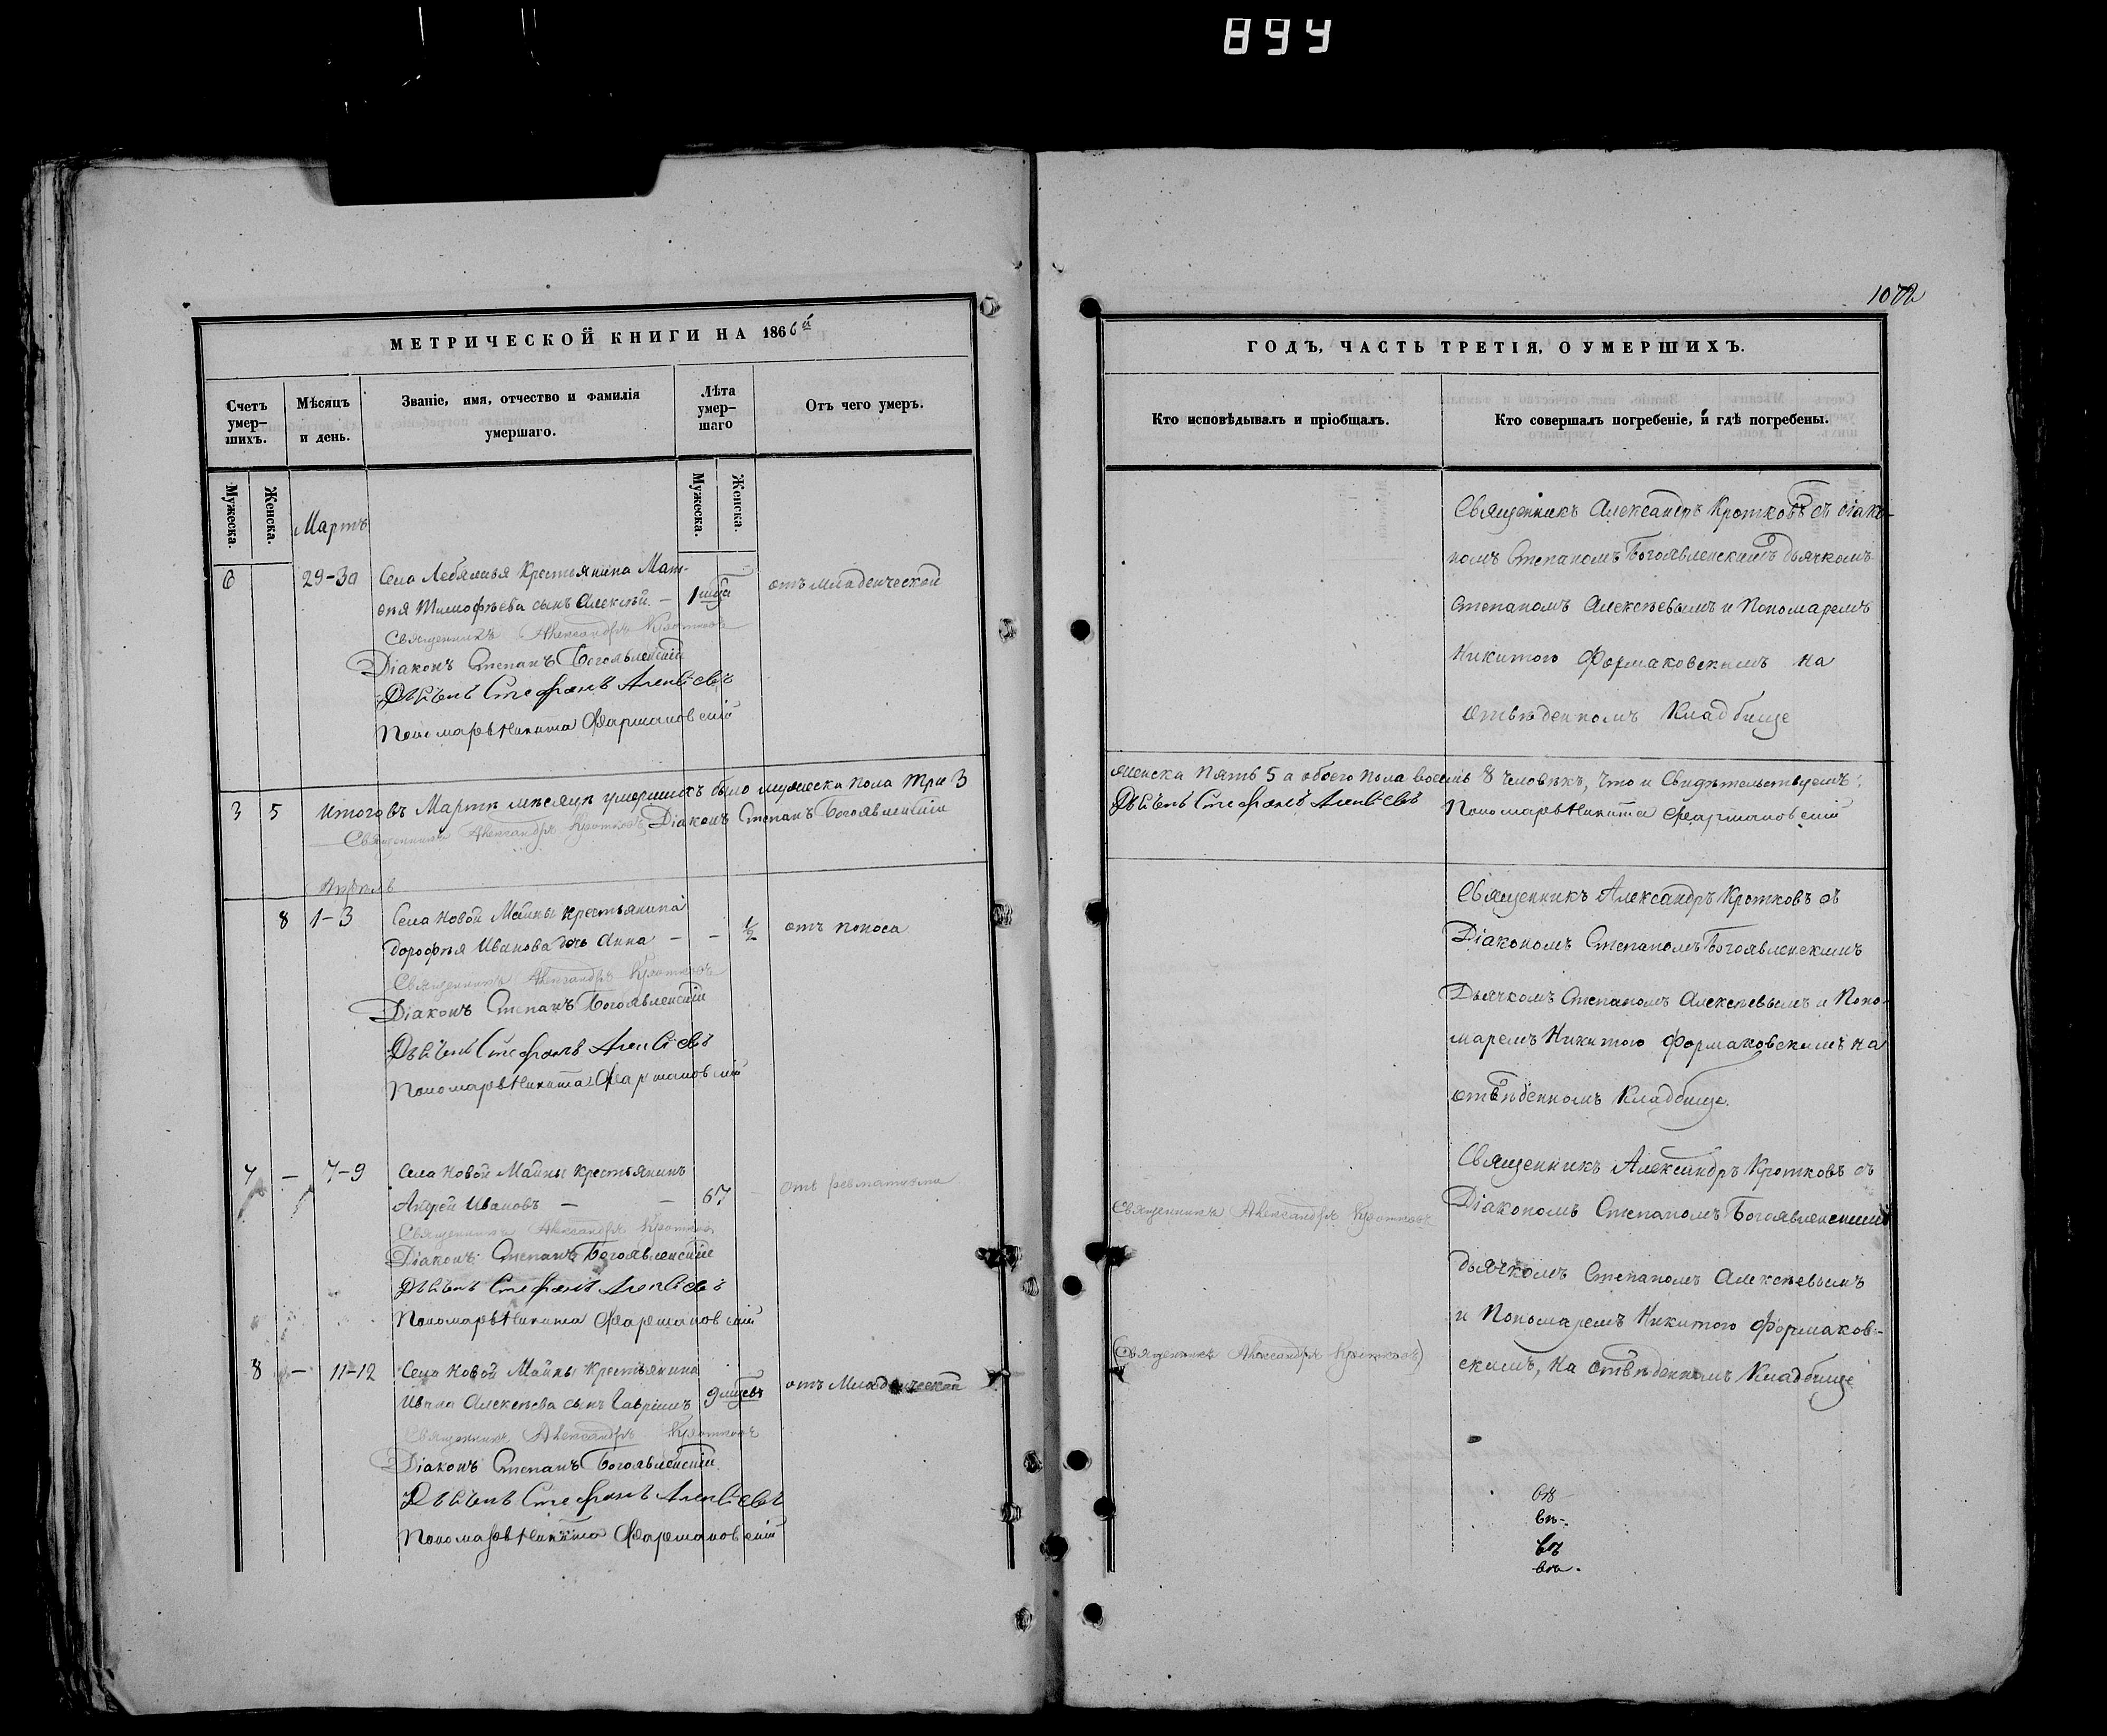 894
1072
МЕТРИЧЕСКОЙ КНИГИ НА 1866й
Счетъ умер-
шихъ.
Мѣсяцъ
и день.
Званіе, имя, отчество и фамилія
умершаго.
Лѣта
умер-
шаго
Отъ чего умеръ.
Мужеска.
Женска.
Мужеска.
Женска.
Мартъ
6 29-30 Села Лебяжья Крестьянина Мат-
ѳея Тимофѣева сынъ Алексѣй. — 1 отъ младенческой
Священникъ Александръ Кротковъ
Діаконъ Степанъ Богоявленскій
Дьячекъ Стефанъ Алексѣевъ
Пономарь Никита Фармаковскій
3 5 Итого въ Мартѣ мѣсяцѣ умершихъ было мужеска пола три 3
Священникъ Александръ Кротковъ Діаконъ Степанъ Богоявленскій
Апрѣль
8 1-3 Села Новой Майны Крестьянина
Дорофея Иванова дочь Анна — — ½ отъ поноса
Священникъ Александръ Кротковъ
Діаконъ Степанъ Богоявленскій
Дьячекъ Стефанъ Алексѣевъ
Пономарь Никита Фармаковскій
7 — 7-9 Села Новой Майны Крестьянинъ
Андрей Ивановъ — — 67 отъ ревматизма
Священникъ Александръ Кротковъ
Діаконъ Степанъ Богоявленскій
Дьячекъ Стефанъ Алексѣевъ
Пономарь Никита Фармаковскій
8 — 11-12 Села Новой Майны Крестьянина
Ивана Алексѣева сынъ Гавріилъ 9 отъ Младенческой
Священникъ Александръ Кротковъ
Діаконъ Степанъ Богоявленскій
Дьячекъ Стефанъ Алексѣевъ
Пономарь Никита Фармаковскій
ГОДЪ, ЧАСТЬ ТРЕТІЯ, О УМЕРШИХЪ.
Кто исповѣдывалъ и пріобщалъ.
Кто совершалъ погребеніе, и гдѣ погребены.
Священникъ Александръ Кротковъ съ діако-
номъ Степаномъ Богоявленскимъ дьячкомъ
Степаномъ Алексѣевымъ и Пономаремъ
Никитою Формаковскимъ на
отвѣденномъ Кладбище
женска пять 5 а обоего пола восемь 8 человѣкъ, что и Свидѣтельствуемъ:
Дьячекъ Стефанъ Алексѣевъ Пономарь Никита Фармаковскій
Священникъ Александръ Кротковъ съ
Діакономъ Степаномъ Богоявленскимъ
Дьячкомъ Степаномъ Алексѣевымъ и Поно-
маремъ Никитою Формаковскимъ на
отвѣденномъ Кладбище.
Священникъ Александръ Кротковъ съ
Священникъ Александръ Кротковъ Діакономъ Степаномъ Богоявленскимъ
дьячкомъ Степаномъ Алексѣевымъ
и Пономаремъ Никитою Формаков-
Священникъ Александръ Кротковъ скимъ, на отвѣденномъ Кладбище